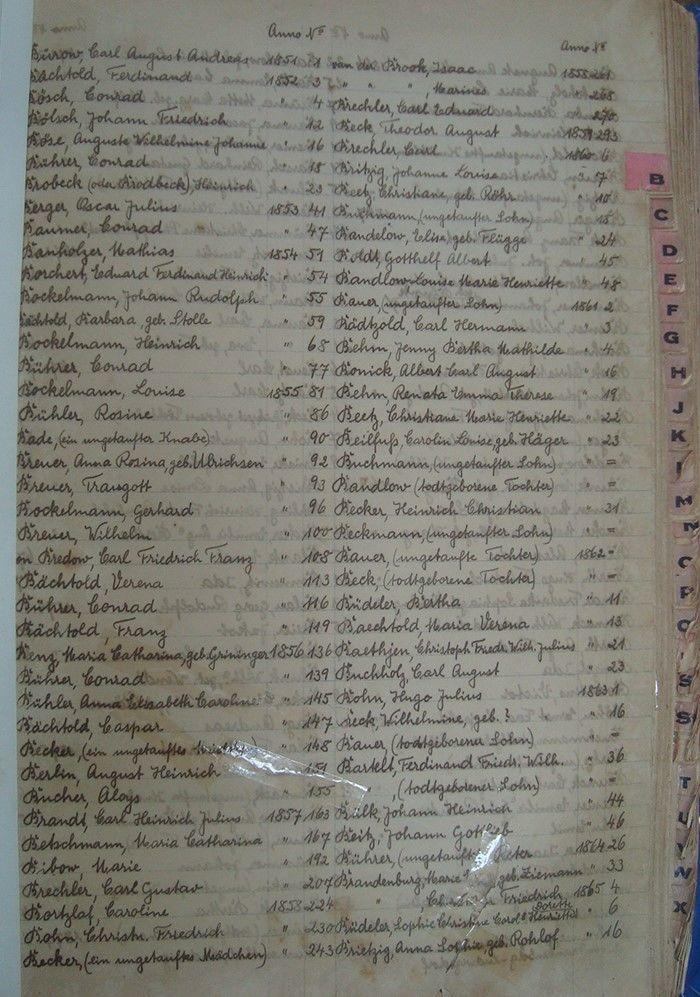 Anno No
Burrow, Carl August Andreas 1851 1
Bächtold, Ferdinand 1852 3
Bösch, Conrad " 4
Bölsch, Johann Friedrich " 12
Böse, Auguste Wilhelmine Johanne " 16
Bührer, Conrad " 18
Brobeck (oder Brodbeck), Heinrich " 23
Berger, Oscar Julius 1853 41
Baumer, Conrad " 47
Banholzer, Mathias 1854 51
Borchert, Eduard Ferdinand Heinrich " 54
Bockelmann, Johann Rudolph " 55
Bächtold, Barbara, geb. Stolle " 59
Bockelmann, Heinrich " 68
Bührer, Conrad " 77
Bockelmann, Louise 1855 81
Bühler, Rosine " 86
Bade, (ein ungetaufter Knabe) " 90
Breuer, Anna Rosina, geb. Ulrichsen " 92
Breuer, Traugott " 93
Bockelmann, Gerhard " 96
Breuer, Wilhelm " 100
on Bredow, Carl Friedrich Franz " 108
Bächtold, Verena " 113
Bührer, Conrad " 116
Bächtold, Franz " 119
Benz, Maria Catharina, geb. Grininger 1856 136
Bührer, Conrad " 139
Bühler, Anna Elisabeth Caroline " 145
Bächtold, Caspar " 147
Becker, (ein ungetauftes " 148
Berlin, August Heinrich " 151
Bucher, Aloys " 155
Brandt, Carl Heinrich Julius 1857 163
Betschmann, Maria Catharina " 167
Bibow, Marie " 192
Brechler, Carl Gustav " 207
Bortzlaf, Caroline 1858 224
Bohn, Christn. Friedrich " 230
Becker, (ein ungetauftes Mädchen) " 243
Anno No
van der Brook, Isaac 1858 261
" " " , Marines " 268
Brechler, Carl Eduard " 278
Beck, Theodor August 1859 293
Brechler, Carl 1860 6
Britzig, Johanne Louise " 7
Beetz, Christiane, geb. Röhr " 10
Buchmann, (ungetaufter Sohn) " 15
Bandelow, Elise, geb. Flügge " 24
Boldt, Gotthelf Albert " 45
Bandlow, Louise Marie Henriette " 48
Bauer, (ungetaufter Sohn) 1861 2
Bädtzold, Carl Hermann " 3
Behm, Jenny Bertha Mathilde " 4
Bonick, Albert Carl August " 16
Behm, Renata Emma Therese " 19
Beetz, Christiane Marie Henriette " 22
Beilfuß, Carolin Louise, geb. Häger " 23
Buchmann, (ungetaufter Sohn) " =
Bandlow (todtgeborene Tochter) " =
Becker, Heinrich Christian " 31
Beckmann, (ungetaufter Sohn) " =
Bauer, (ungetaufte Tochter) 1862 =
Beck, (todtgeborene Tochter) " =
Büdeler, Bertha " 11
Baechtold, Maria Verena " 13
Baethjen, Christoph Friedr. Wilh. Julius " 21
Buchholz, Carl August " 23
Bohn, Hugo Julius 1863 1
Beck, Wilhelmine, geb. ? " 16
Bauer, (todtgeborener Sohn) " =
Bartelt, Ferdinand Friedr. Wilh. " 36
" , (todtgeborener Sohn) " =
Bülk, Johann Heinrich " 44
Beitz, Johann Gottlieb " 46
Bührer, 1864 26
Brandenburg, Marie geb. Ziemann " 33
" Christian Friedrich 1865 4
Dorette
Büdeler, Sophie Christine Carol. Henriette " 6
Brietzig, Anna Sophie, geb. Rohlof " 16
B
C
D
E
F
G
H
J
K
L
M
N
O
P
Q
S
S
T
U
W
X